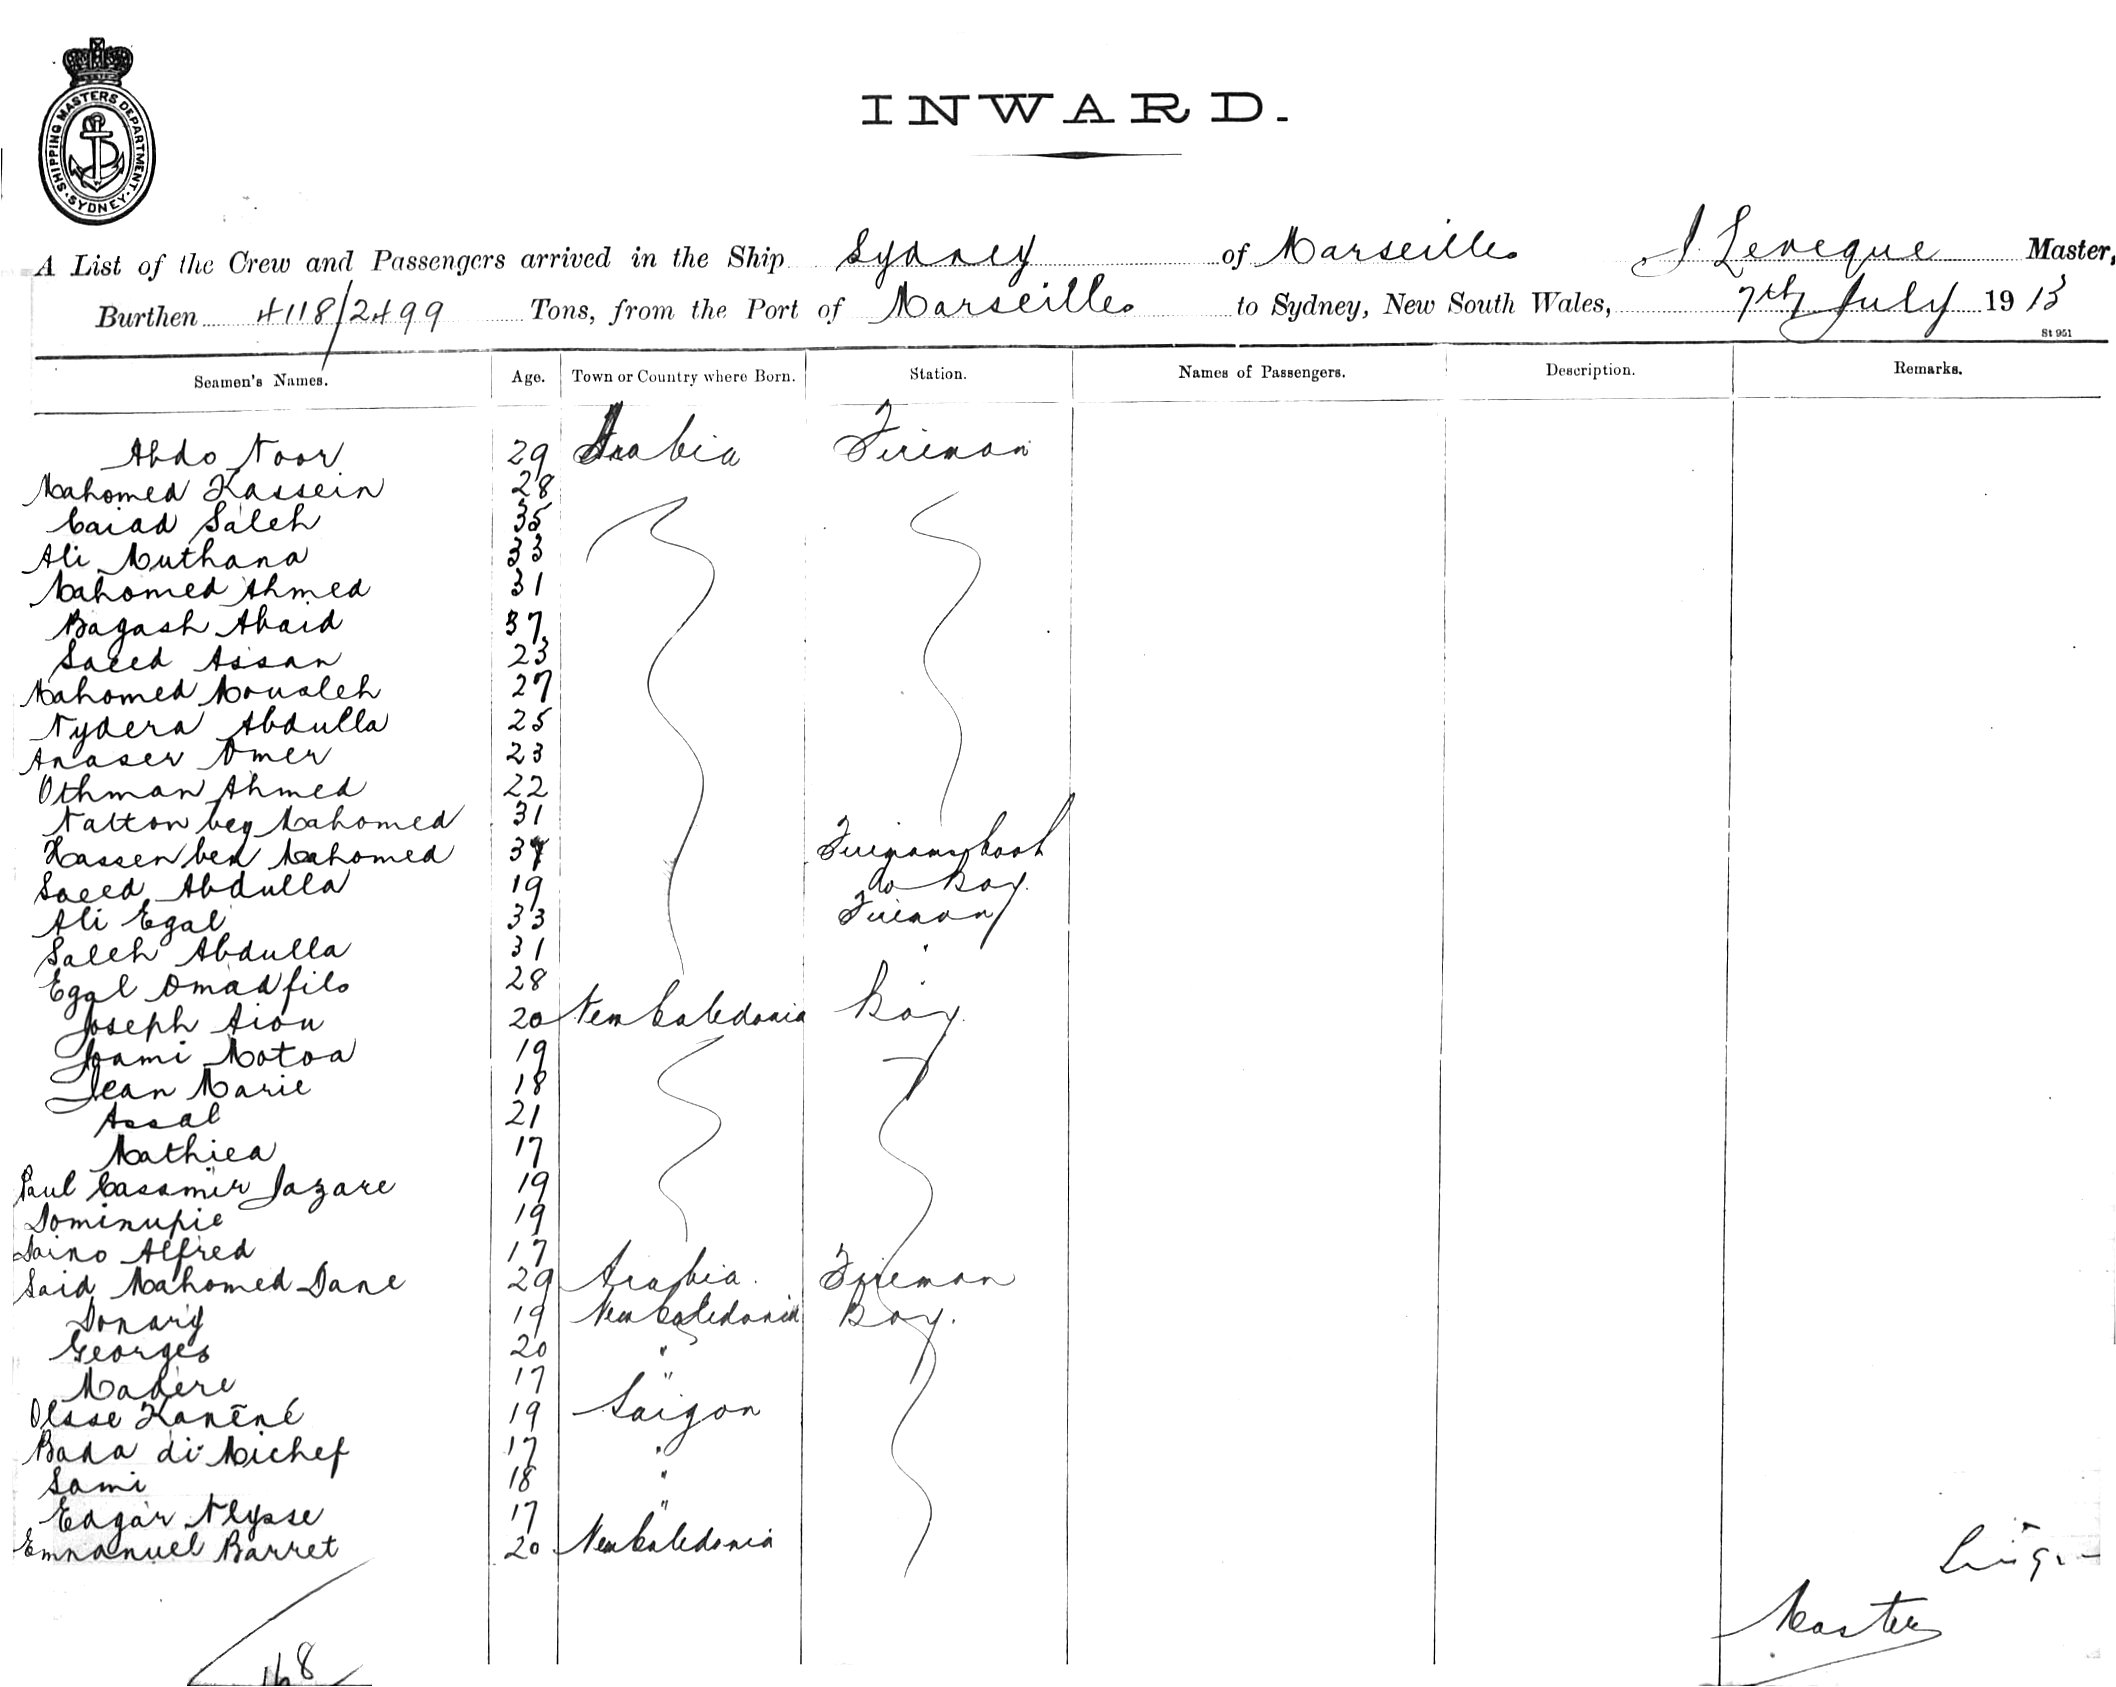 SHIPPING MASTERS DEPARTMENT · SYDNEY ·
INWARD.
A List of the Crew and Passengers arrived in the Ship Sydney of Marseilles J Leveque Master,
Burthen 4118/2499 Tons, from the Port of Marseilles to Sydney, New South Wales, 7th July 1913
St 951
Seamen's Names. Age. Town or Country where Born. Station. Names of Passengers. Description. Remarks.
Abdo Noor 29 Arabia Fireman
Mahomed Kassein 28
Caiad Saleh 35
Ali Muthana 33
Mahomed Ahmed 31
Bagash Abaid 37
Saeed Assan 23
Mahomed Mousleh 27
Nydera Abdulla 25
Anaser Omer 23
Othman Ahmed 22
Natton beg Mahomed 31
Hassen ben Mahomed 37 Firemans Cook
Saeed Abdulla 19 do Boy.
Ali Egal 33 Fireman
Saleh Abdulla 31 "
Egal Omad fils 28
Joseph Aiou 20 New Caledonia Boy.
Joami Motoa 19
Jean Marie 18
Assal 21
Mathiea 17
Paul Cassmir Jazare 19
Dominupie 19
Saino Alfred 17
Said Mahomed Dane 29 Arabia. Fireman
Donarij 19 New Caledonia Boy.
Georges 20 "
Madere 17 "
Olsse Kanēné 19 Saigon
Bada di Michef 17 "
Sami 18 "
Edgar Nlysse 17 "
Emnanuel Barret 20 New Caledonia
Master
168